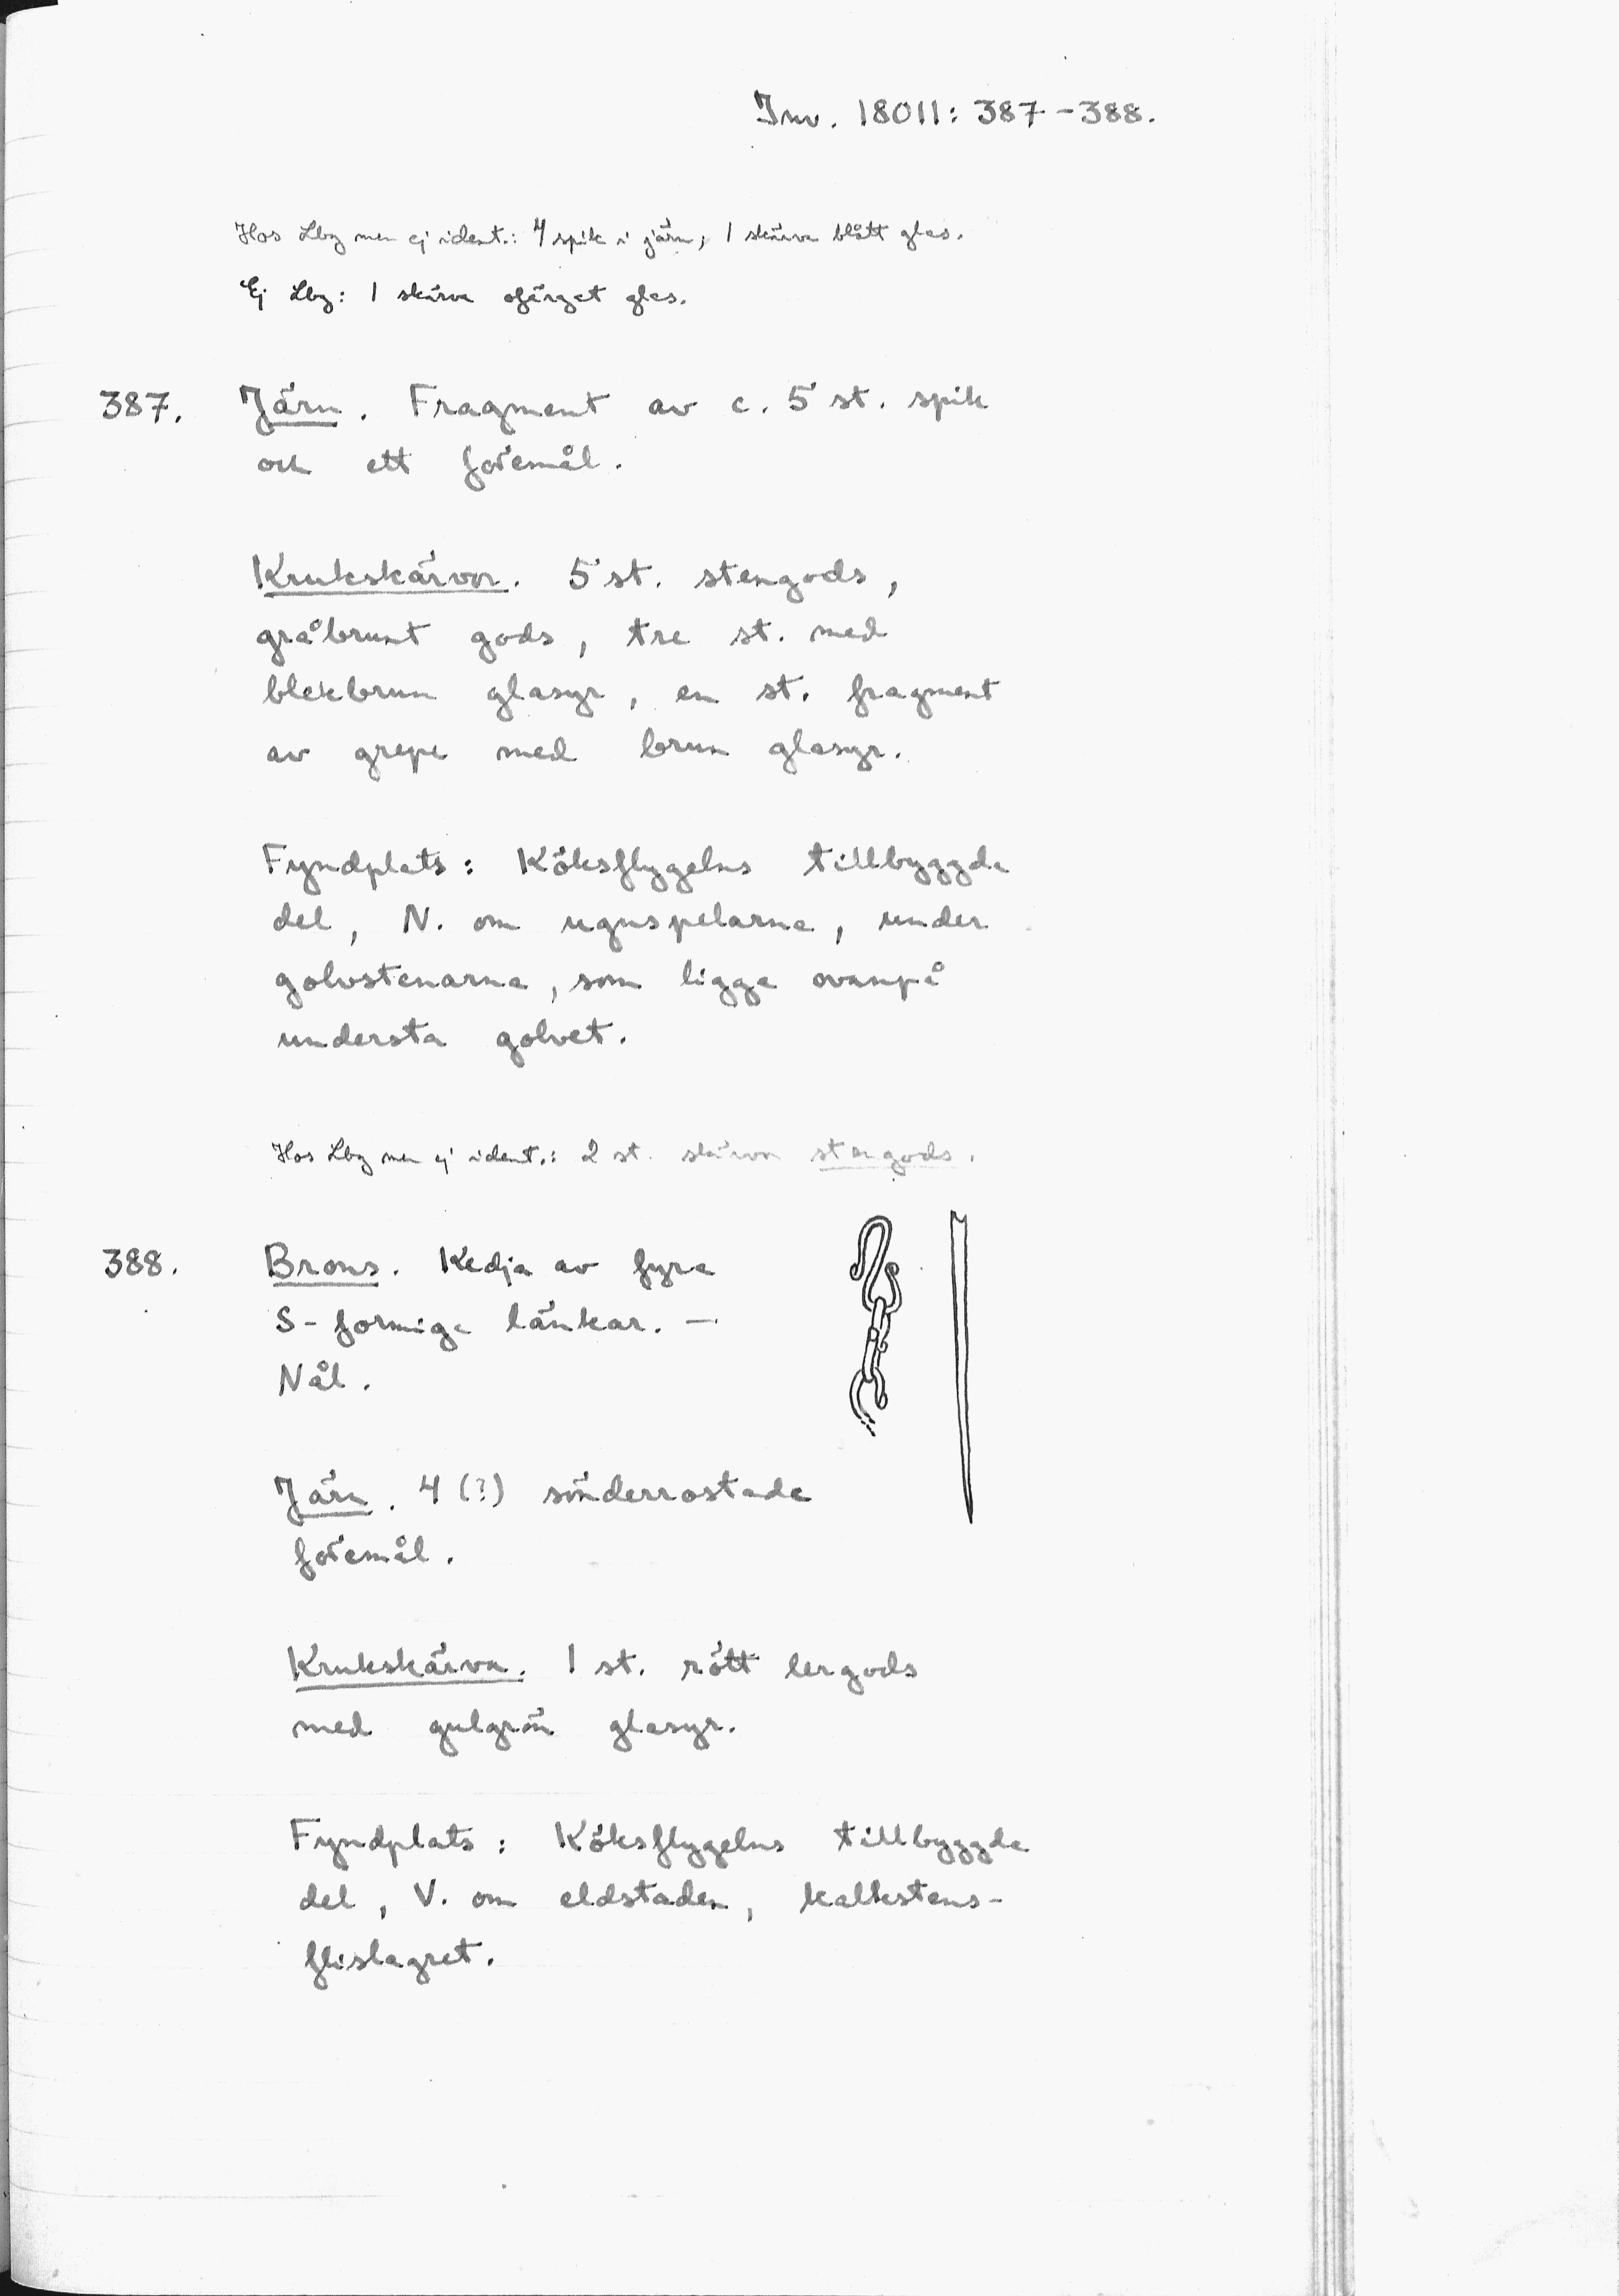 Inv. 18011: 387-388.
Hos Lbg men ej ident.: 4 spik i järn, 1 skärva blått glas.
Ej Lbg: 1 skärva ofärgat glas.
387. Järn. Fragment av c. 5 st. spik
och ett föremål.
Krukskärvor. 5 st. stengods,
gråbrunt gods, tre st. med
blekbrun glasyr, en st. fragment
av grepe med brun glasyr.
Fyndplats: Köksflygelns tillbyggda
del, N. om ugnspelarna, under
golvstenarna, som ligga ovanpå
understa golvet.
Hos Lbg men ej ident.: 2 st. skärvor stengods.
388. Brons. Kedja av fyra
S-formiga länkar. —
Nål.
Järn. 4 (?) sönderrostade
föremål.
Krukskärva. 1 st. rött lergods
med gulgrön glasyr.
Fyndplats: Köksflygelns tillbyggda
del, V. om eldstaden, kalkstens-
flislagret.